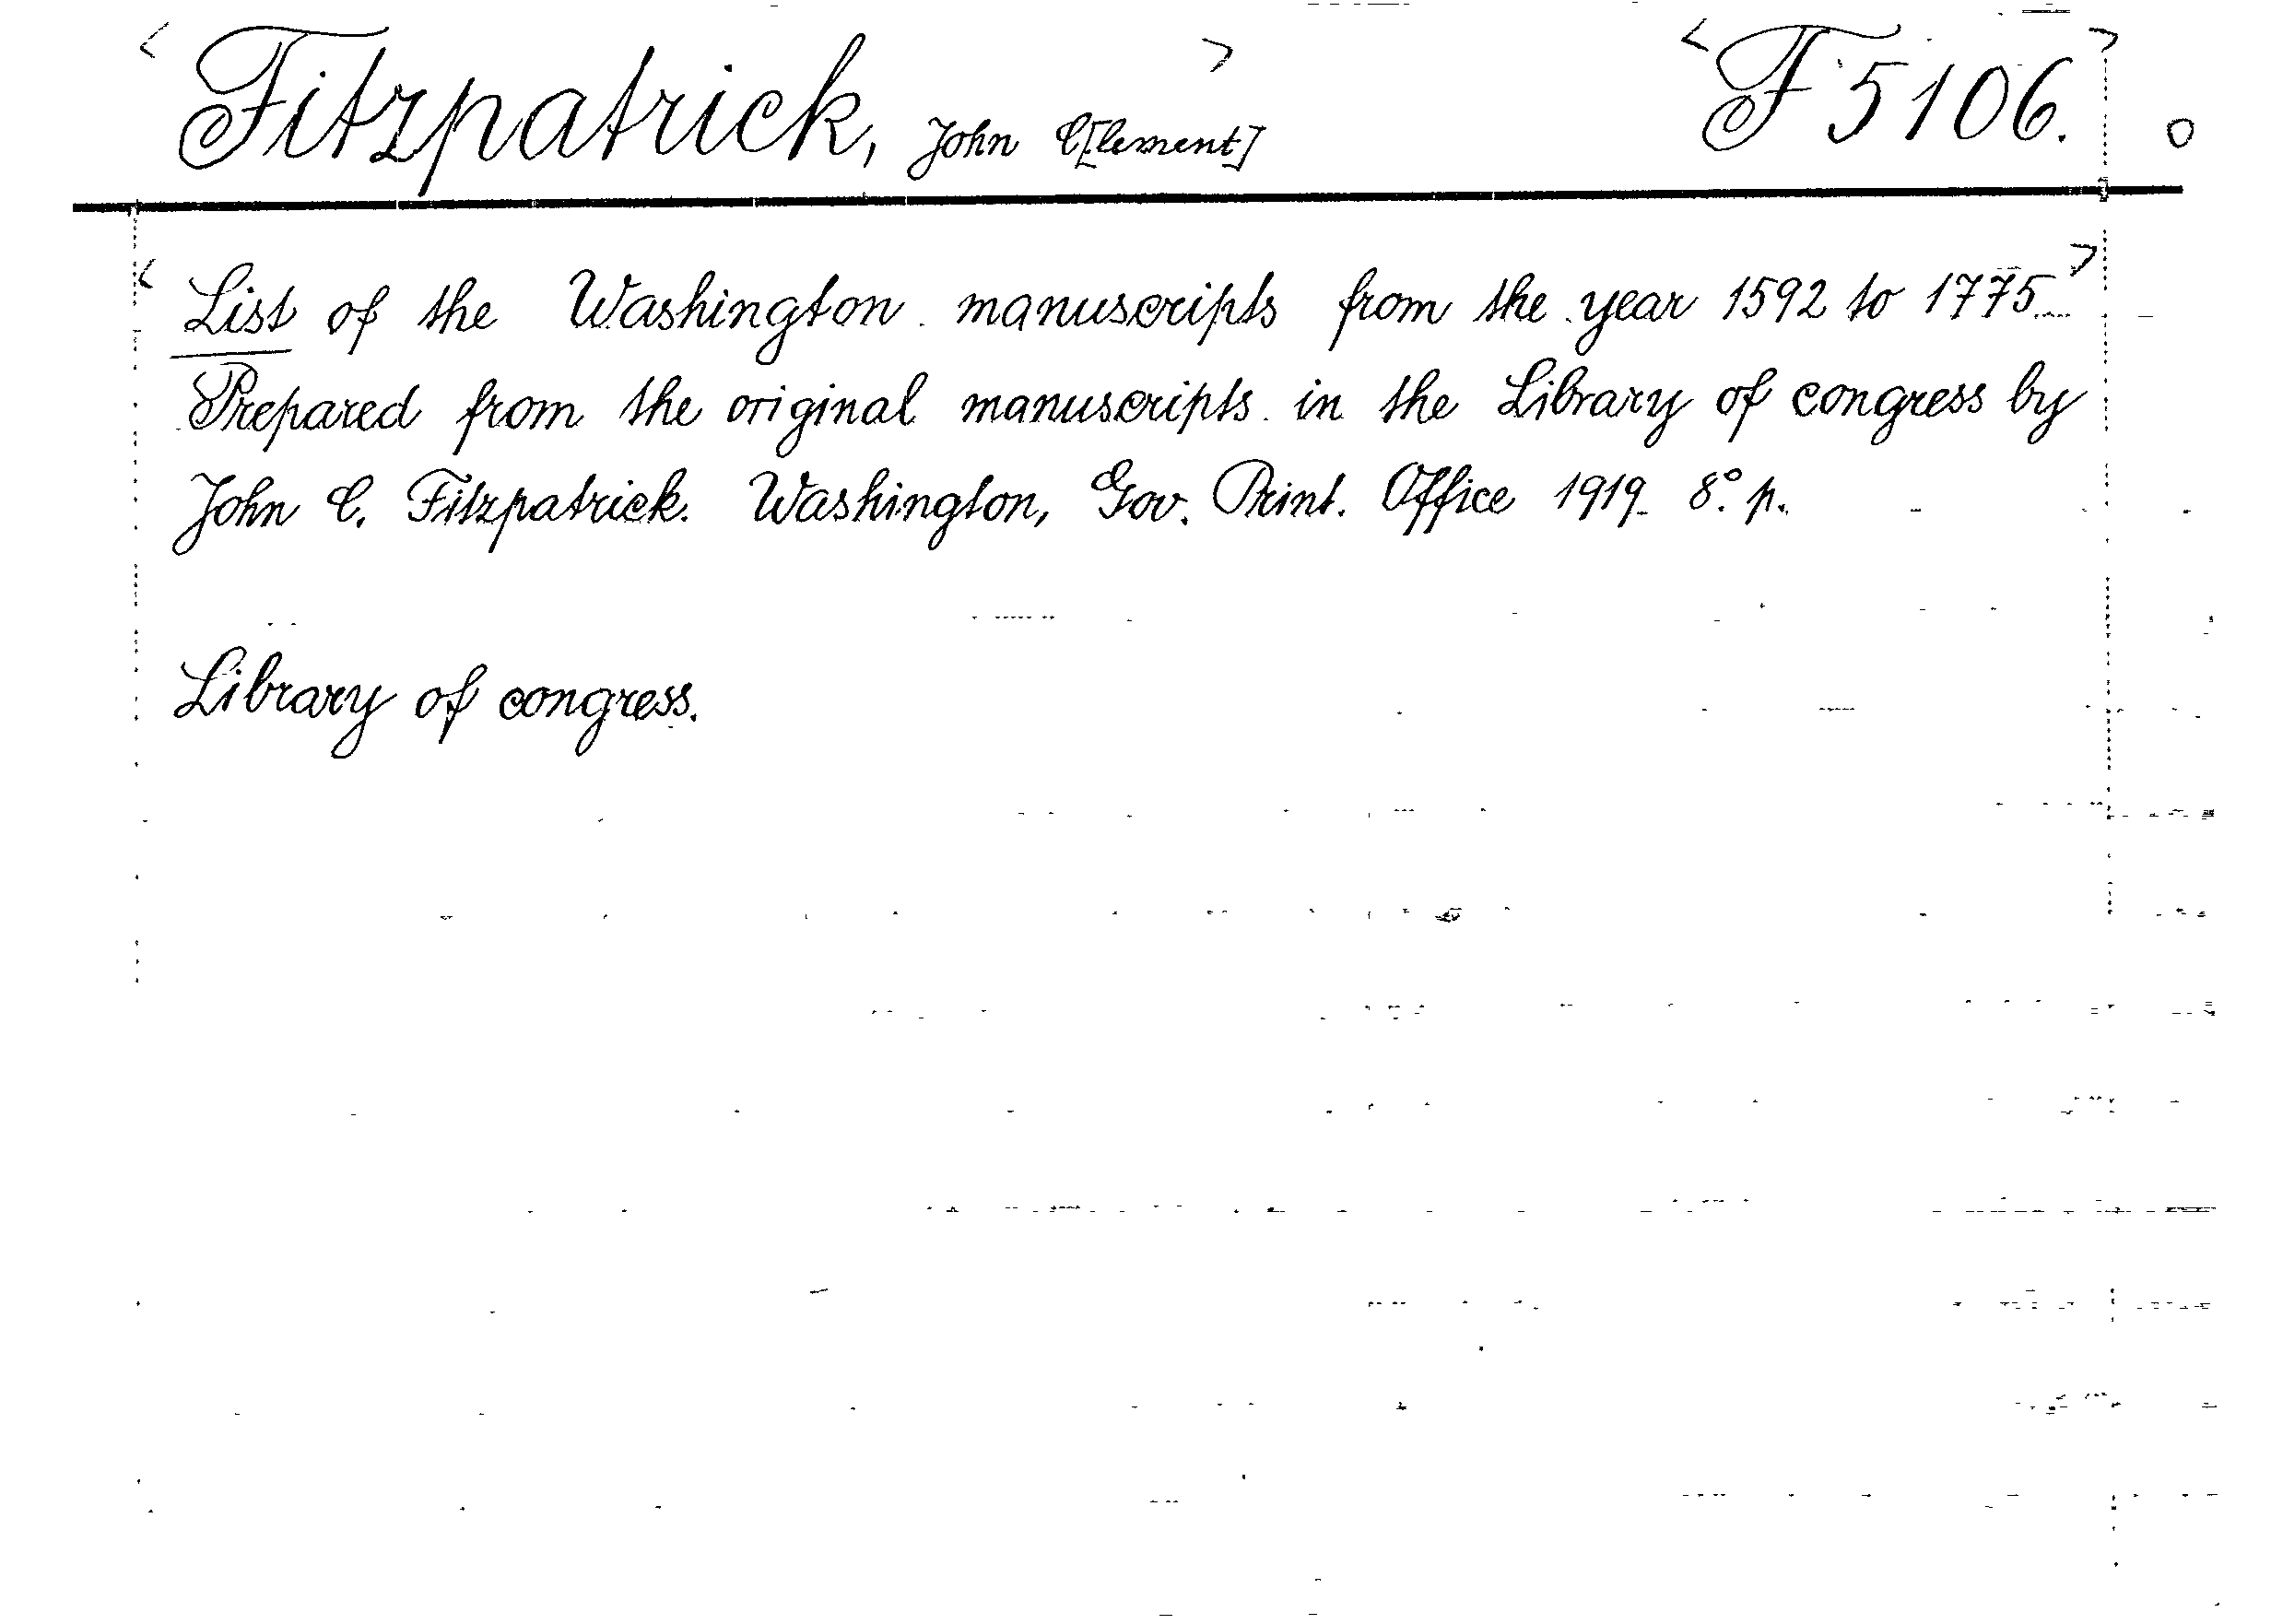 < Fitzpatrick, John C[lement] > < F 5106. >
< List of the Washington manuscripts from the year 1592 to 1775 >
Prepared from the original manuscripts in the Library of congress by
John C. Fitzpatrick. Washington, Gov. Print. Office 1919. 8° p.
Library of congress.